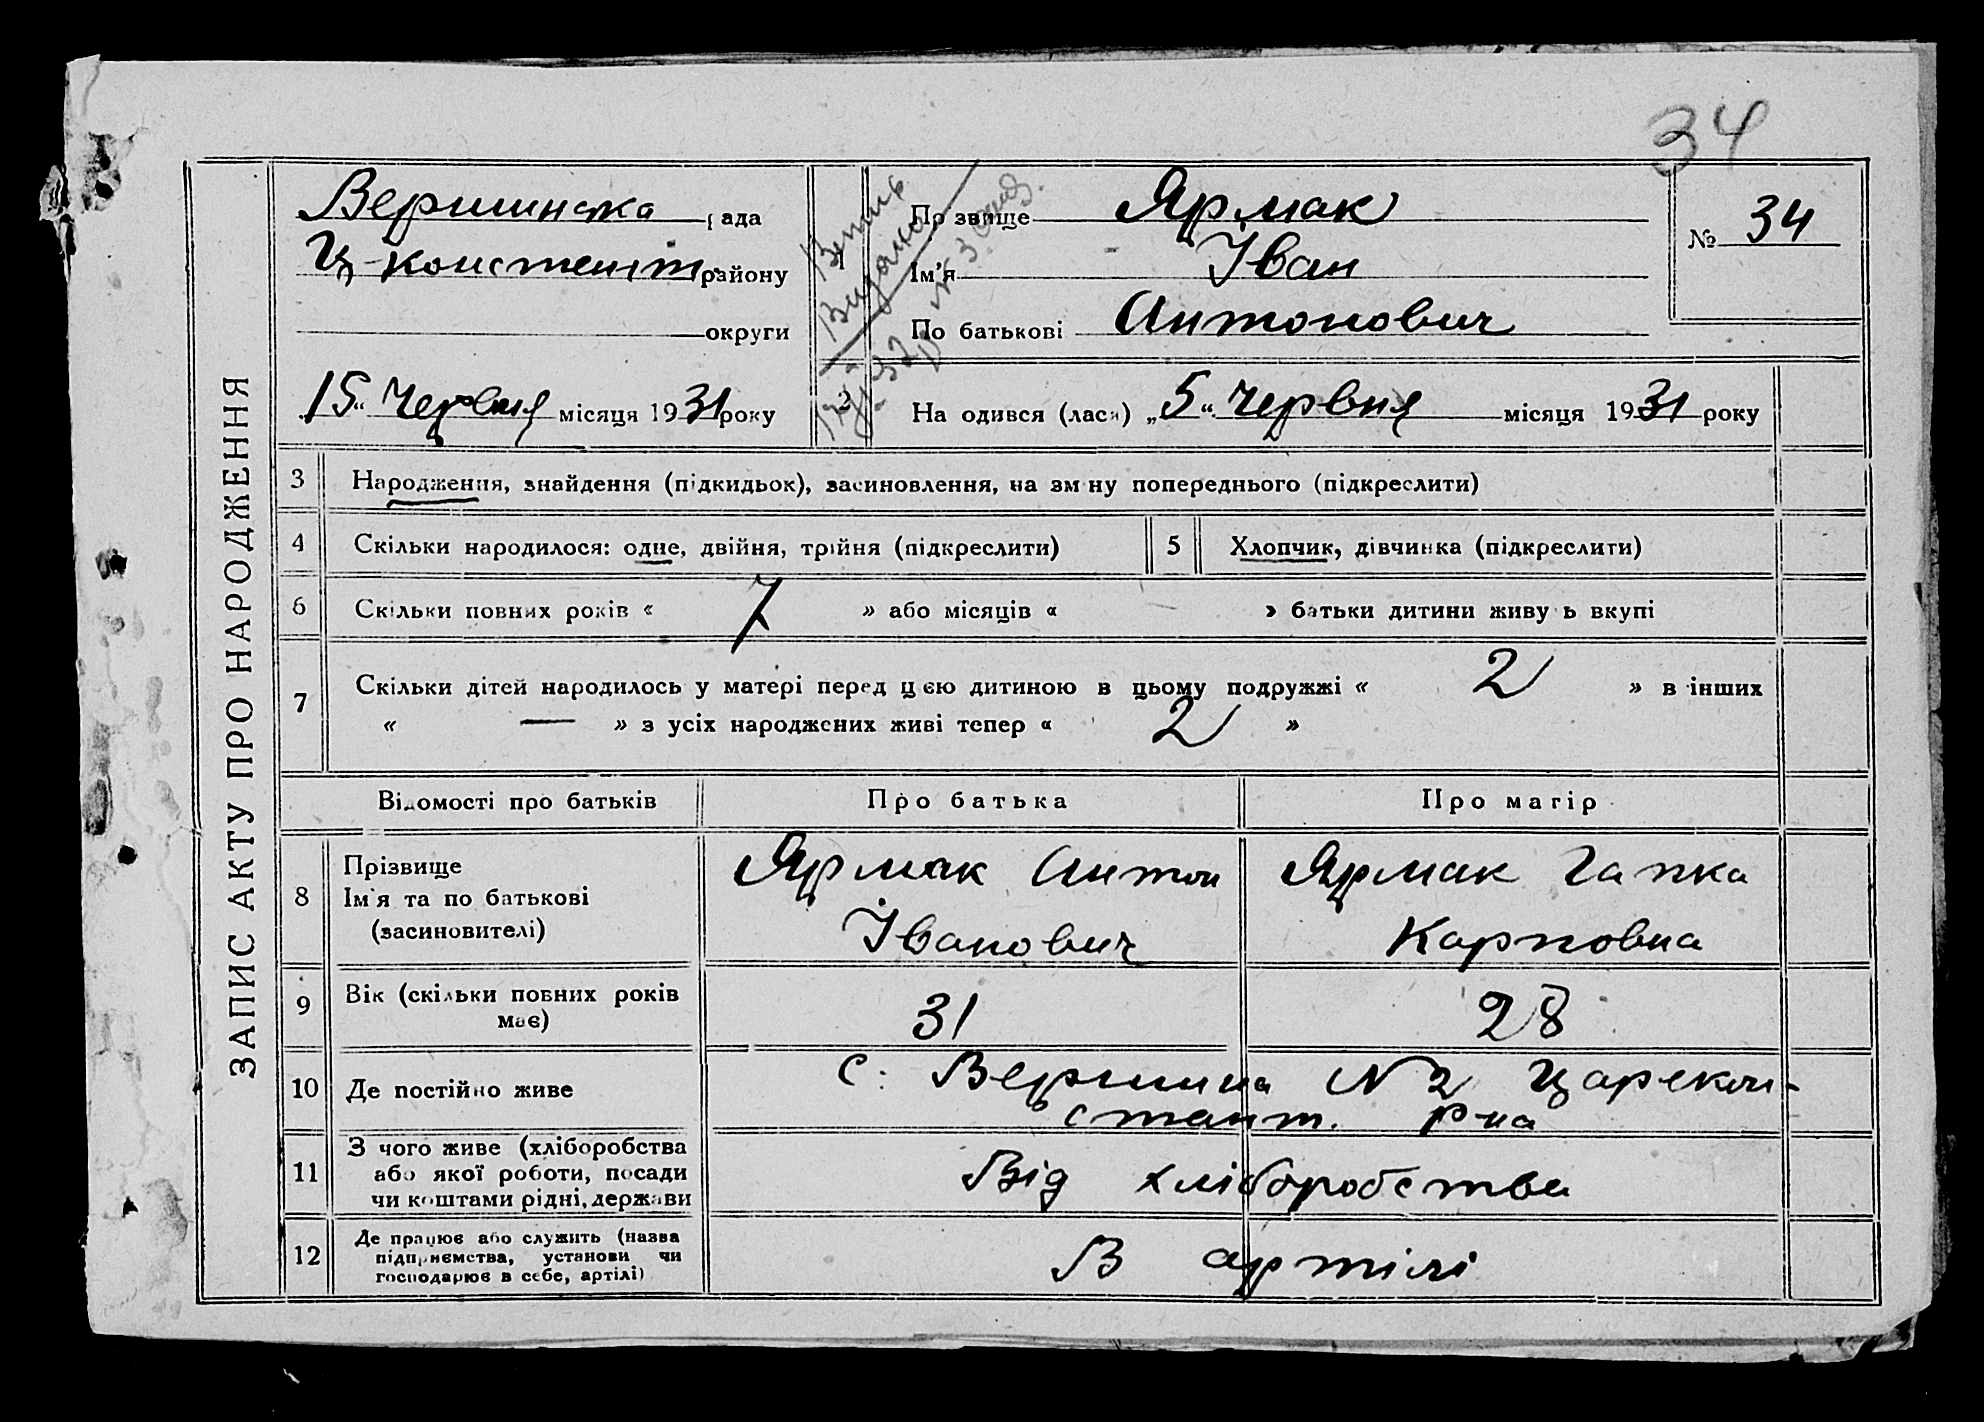 34
ЗАПИС АКТУ ПРО НАРОДЖЕННЯ
Вершинська рада
Ц-констент. району
округи
„15“ Червня місяця 1931 року
Прізвище Ярмак
Ім'я Іван
По батькові Антонович
№ 34
Витяг
Видано
2
На одився (лась) „5“ Червня місяця 1931 року
3 Народження, знайдення (підкидьок), засиновлення, на зміну попереднього (підкреслити)
4 Скільки народилося: одне, двійня, трійня (підкреслити)
5 Хлопчик, дівчинка (підкреслити)
6 Скільки повних років « 7 » або місяців « » батьки дитини живуть вкупі
7 Скільки дітей народилось у матері перед цією дитиною в цьому подружжі « 2 » в інших
« — » з усіх народжених живі тепер « 2 »
Відомості про батьків Про батька Про матір
8 Прізвище
Ім'я та по батькові
(засиновителі)
Ярмак Антон
Іванович
Ярмак Гапка
Карповна
9 Вік (скільки повних років
має)
31
28
10 Де постійно живе
с. Вершина N 2 Царекон-
стант. р-на
11 З чого живе (хліборобства
або якої роботи, посади
чи коштами рідні, держави
Від хліборобства
12 Де працює або служить (назва
підприємства, установи чи
господарює в себе, артілі)
В артілі